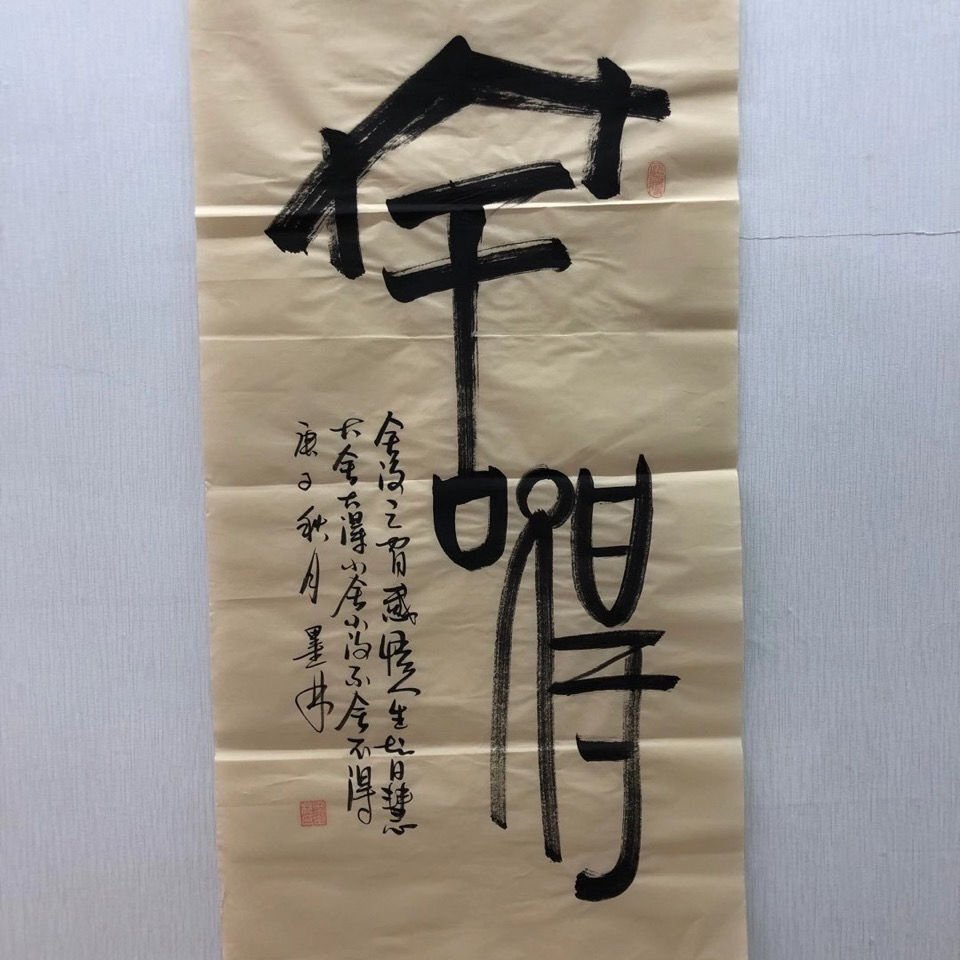 舍得
舍得之間感悟人生智慧
大舍大得小舍小得不舍不得
庚子秋月 墨